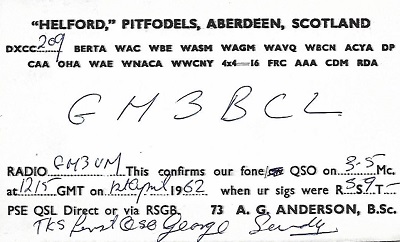 "HELFORD," PITFODELS, ABERDEEN, SCOTLAND
DXCC 209 BERTA WAC WBE WASM WAGM WAVQ WBCN ACYA DP
CAA OHA WAE WNACA WWCNY 4x4=16 FRC AAA CDM RDA
GM3BCL
RADIO GM3UM This confirms our fone QSO on 3-5 Mc.
at 1215 GMT on April 1962 when our sigs were R5 S9 T-
PSE QSL Direct or via RSGB. 73 A. G. ANDERSON, B.Sc.
TKS QSO George